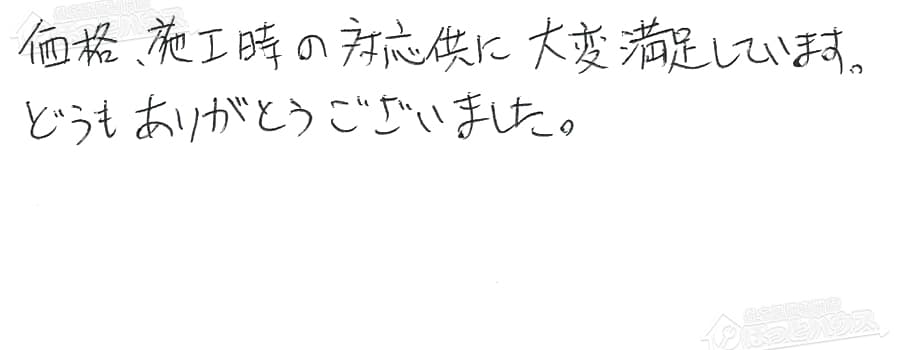 価格、施工時の対応供に大変満足しています。
どうもありがとうございました。
ほっとハウス